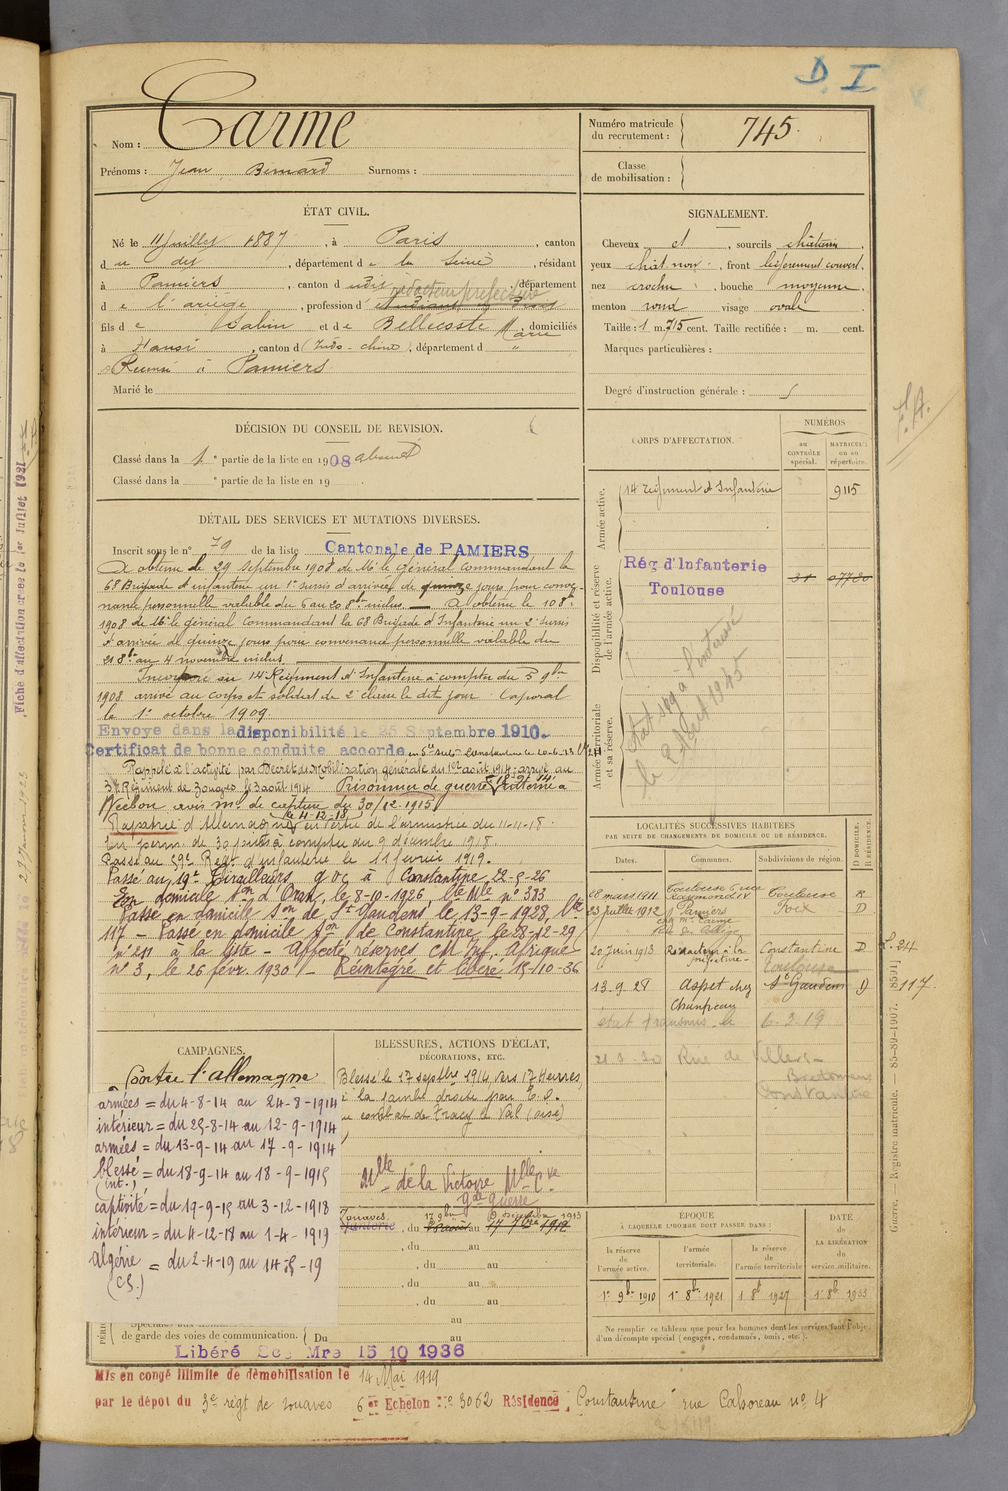 D. I
Carme
Nom :
Prénoms : Jean Bernard Surnoms :
Numéro matricule
du recrutement :
745.
Classe
de mobilisation :
ÉTAT CIVIL.
Né le 11 Juillet 1887, à Paris, canton
d u dit, département d e la Seine, résidant
à Pamiers, canton d udit, département
rédacteur préfecture
d e l'ariège, profession d' étudiant en Droit
fils d e Sabin et d e Bellecoste Marie, domiciliés
à Hanoï, canton d (Indo-chine), département d "
Résumé à Pamiers
Marié le
SIGNALEMENT.
Cheveux et, sourcils châtain,
yeux chât. noir, front légèrement couvert,
nez crochu, bouche moyenne,
menton rond visage ovale.
Taille : 1 m. 715 cent. Taille rectifiée : m. cent.
Marques particulières :
Degré d'instruction générale : 5
DÉCISION DU CONSEIL DE REVISION.
Classé dans la 1e partie de la liste en 1908 absent
Classé dans la e partie de la liste en 19 .
DÉTAIL DES SERVICES ET MUTATIONS DIVERSES.
Inscrit sous le n° 79 de la liste Cantonale de PAMIERS
A obtenu le 29 septembre 1908 de Mr le général commandant la
68 Brigade d'infanterie un 1er sursis d'arrivée de quinze jours pour conve-
nance personnelle valable du 6 au 20 8bre inclus. — A obtenu le 10 8bre
1908 de Mr le général Commandant la 68 Brigade d'Infanterie un 2e sursis
d'arrivée de quinze jours pour convenance personnelle valable du
21 8bre au 4 novembre inclus.
Incorporé au 14 Régiment d'Infanterie à compter du 5 9bre
1908 arrivé au corps et soldat de 2e classe le dit jour. Caporal
le 1er octobre 1909.
Envoyé dans la disponibilité le 25 Septembre 1910.
Certificat de bonne conduite accordé
Rappelé à l'activité par Décret de Mobilisation générale du 1er août 1914 arrivé au
3e Régiment de Zouaves le 3 août 1914 Prisonnier de guerre interné à
avis me de capture du 30/12 1915
(le 4-12-18)
Rapatrié d'Allemagne en vertu de l'armistice du 11-11-18.
En perm. de 30 jours à compter du 9 décembre 1918.
Passé au 59e Régt d'infanterie le 11 février 1919.
Passé au 19e Tirailleurs, g.v.c à Constantine, 22-5-26
Son domicile Son d'Oran, le 8-10-1926, lte Mle n° 383
Passe en domicile Son de St Gaudens le 13-9-1928, lte
117 — Passe en domicile Son de Constantine, le 28-12-29
n° 211 à la liste — Affecté réserves CM Inf. Afrique
n° 3, le 26 févr. 1930 — Réintégré et libéré 15-10-36
CORPS D'AFFECTATION.
NUMÉROS
au
CONTRÔLE
spécial.
MATRICULE
ou au
répertoire.
Armée active.
14 Régiment d'Infanterie
9115
Disponibilité et réserve
de l'armée active.
Rég d'Infanterie
Toulouse
31 07720
Armée territoriale
et sa réserve.
LOCALITÉS SUCCESSIVES HABITÉES
PAR SUITE DE CHANGEMENTS DE DOMICILE OU DE RÉSIDENCE.
Dates. Communes. Subdivisions de région. D DOMICILE. R RÉSIDENCE.
28 mars 1911 Toulouse 6 rue Raymond IV Toulouse R
23 juillet 1912 Pamiers Foix D
20 Juin 1913 Rédacteur à la préfecture Constantine D
Toulouse
13. 9. 28 Aspet chez St Gaudens D
état transmis le 6-2-19
21-2-20 Rue de Villers-
Constantine
F. A.
117.
CAMPAGNES.
Contre l'allemagne
armées = du 4-8-14 au 24-8-1914
intérieur = du 25-8-14 au 12-9-1914
armées = du 13-9-14 au 17-9-1914
blessé = du 18-9-14 au 18-9-1915
(int.)
captivité = du 19-9-15 au 3-12-1918
intérieur = du 4-12-18 au 1-4-1919
algérie = du 2-4-19 au 14-5-19
(CG.)
BLESSURES, ACTIONS D'ÉCLAT,
DÉCORATIONS, ETC.
Blessé le 17 septbre 1914 vers 17 heures
à la jambe droite par E. O.
au combat de Tracy le Val (oise)
Mlle de la Victoire Mlle Cve
gde guerre
Zouaves.
, du au
, du au
, du au
, du au
au
de garde des voies de communication. Du au
ÉPOQUE
À LAQUELLE L'HOMME DOIT PASSER DANS :
la réserve
de
l'armée active.
l'armée
territoriale.
la réserve
de
l'armée territoriale
DATE
de
LA LIBÉRATION
du
service militaire.
1er 9bre 1910 1er 8bre 1921 1 8bre 1927 1er 8bre 1933
Ne remplir ce tableau que pour les hommes dont les services font l'objet
d'un décompte spécial (engagés, condamnés, omis, etc.).
Libéré Mre 15 10 1936
Mis en congé illimité de démobilisation le 14 Mai 1919
par le dépôt du 3e régt de zouaves 6e Echelon N° 3062 Résidence : Constantine rue Cahoreau n° 4
Guerre. — Registre matricule. — 85-89-1907. [8501]